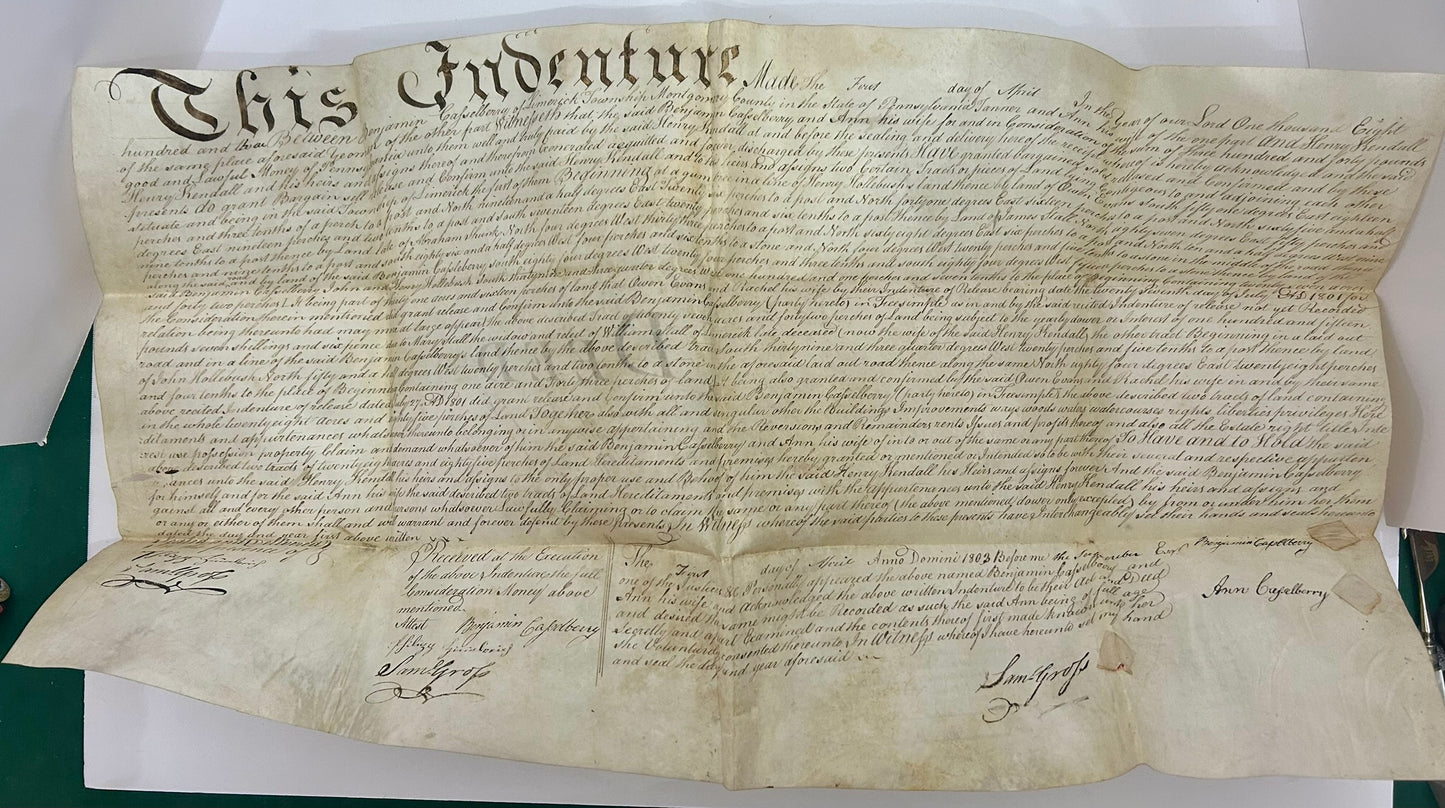 This Indenture Made The First day of April In the Year of our Lord One thousand Eight
hundred and Between Benjamin Casselberry of Limerick Township Montgomery County in the State of Pennsylvania Tanner and Ann his wife of the one part And Henry Kendall
of the same place aforesaid Yeoman of the other part Witnesseth that the said Benjamin Casselberry and Ann his wife for and in Consideration of the sum of three hundred and forty pounds
good and Lawful Money of Pennsylvania unto them well and truly paid by the said Henry Kendall at and before the sealing and delivery here of the receipt whereof is hereby acknowledged and the said
Henry Kendall and his heirs and assigns thereof and therefrom acquitted and forever discharged by these presents Have granted bargained sold released and Confirmed and by these
presents do grant Bargain sell release and Confirm unto the said Henry Kendall and to his heirs and assigns two Certain Tracts or pieces of Land lying Contiguous to and adjoining each other
situate and being in the said Township of Limerick the first of them Beginning at a in a line of Henry Hollebush's land thence by land of Owen Evans South fifty one degrees East eighteen
perches and three tenths of a perch to a post and North nineteen and a half degrees East Twenty six perches to a post and North forty one degrees East sixteen perches to a post and North sixty five and a half
degrees East nineteen perches and to a post and south seventeen degrees East twenty perches and six tenths to a post thence by Land of James Stall North eighty seven degrees East fifty perches and
nine tenths to a post thence by Land late of Abraham Shunk North four degrees West thirty three perches to a post and North sixty eight degrees East six perches to a post and North ten and a half degrees West nine
perches and nine tenths to a post and south eighty six and a half degrees West four perches and six tenths to a stone and North four degrees West twenty perches and to a stone in the middle of the road thence
along the said road and by land of the said Benjamin Casselberry south eighty four degrees West twenty four perches and three tenths and south eighty four degrees West perches to a stone thence by land of the
said Benjamin Casselberry John and Henry Hollebush South thirty nine and three quarter degrees West one hundred and one perches and seven tenths to the place of Beginning containing twenty seven acres
and forty two perches It being part of thirty one acres and sixteen perches of land that Owen Evans and Rachel his wife by their Indenture of Release bearing date the twenty seventh day of July AD 1801 for
the Consideration therein mentioned did grant release and Confirm unto the said Benjamin Casselberry (party hereto) in Feesimple as in and by the said recited Indenture of release not yet Recorded
relation being thereunto had may more at large appear the above described Tract of twenty seven acres and forty two perches of Land being subject to the yearly dower or Interest of one hundred and fifteen
pounds seven shillings and six pence due to Mary Stall the widow and relect of William Stall of Limerick late deceased (now the wife of the said Henry Kendall) the other tract Beginning in a laid out
road and in a line of the said Benjamin Casselberry's land thence by the above described tract South thirty nine and three quarter degrees West twenty perches and five tenths to a post thence by land
of John Hollebush North fifty and a half degrees West twenty perches and two tenths to a stone in the aforesaid laid out road thence along the same North eighty four degrees East twenty eight perches
and four tenths to the place of Beginning Containing one Acre and Forty three perches of land It being also granted and confirmed by the said Owen Evans and Rachel his wife in and by their same
above recited Indenture of release dated July 27 AD 1801 did grant release and Confirm unto the said Benjamin Casselberry (party hereto) in Feesimple the above described two tracts of land containing
in the whole twenty eight acres and eighty five perches of Land Together also with all and singular other the Buildings Improvements ways woods waters watercourses rights Liberties privileges Here
ditaments and appurtenances whatsoever thereunto belonging or in anywise appertaining and the Reversions and Remainders rents Issues and profits thereof and also all the Estate right title Inte
rest use possession property Claim and demand whatsoever of him the said Benjamin Casselberry and Ann his wife of in to or out of the same or any part thereof To Have and to Hold the said
above described two tracts of twenty eight acres and eighty five perches of Land Hereditaments and premises hereby granted or mentioned or Intended so to be with their several and respective appurten
ances unto the said Henry Kendall his heirs and assigns to the only proper use and Behoof of him the said Henry Kendall his Heirs and assigns forever And the said Benjamin Casselberry
for himself and for the said Ann his wife the said described two tracts of Land Hereditaments and premises with the appurtenances unto the said Henry Kendall his heirs and assigns and
against all and every other person and persons whatsoever Lawfully Claiming or to claim the same or any part thereof (the above mentioned dower only excepted) by from or under him her them
or any or either of them shall and will warrant and forever defend by these Presents In Witness whereof the said parties to these presents have Interchangeably set their hands and seals hereunto
dated the day and year first above written
presence of
Saml Gross
Received at the Execution
of the above Indenture the full
Consideration Money above
mentioned
Attest Benjamin Casselberry
Saml Gross
The First day of April Anno Domini 1803 Before me the Subscriber Esqr
one of the Justices &c Personally appeared the above named Benjamin Casselberry and
Ann his wife and acknowledged the above written Indenture to be their Act and Deed
and desired the same might be Recorded as such the said Ann being of full age
Secretly and apart Examined and the contents thereof first made known unto her
She Voluntarily consented thereunto In Witness whereof I have hereunto set my hand
and seal the day and year aforesaid
Saml Gross
Benjamin Casselberry
Ann Casselberry